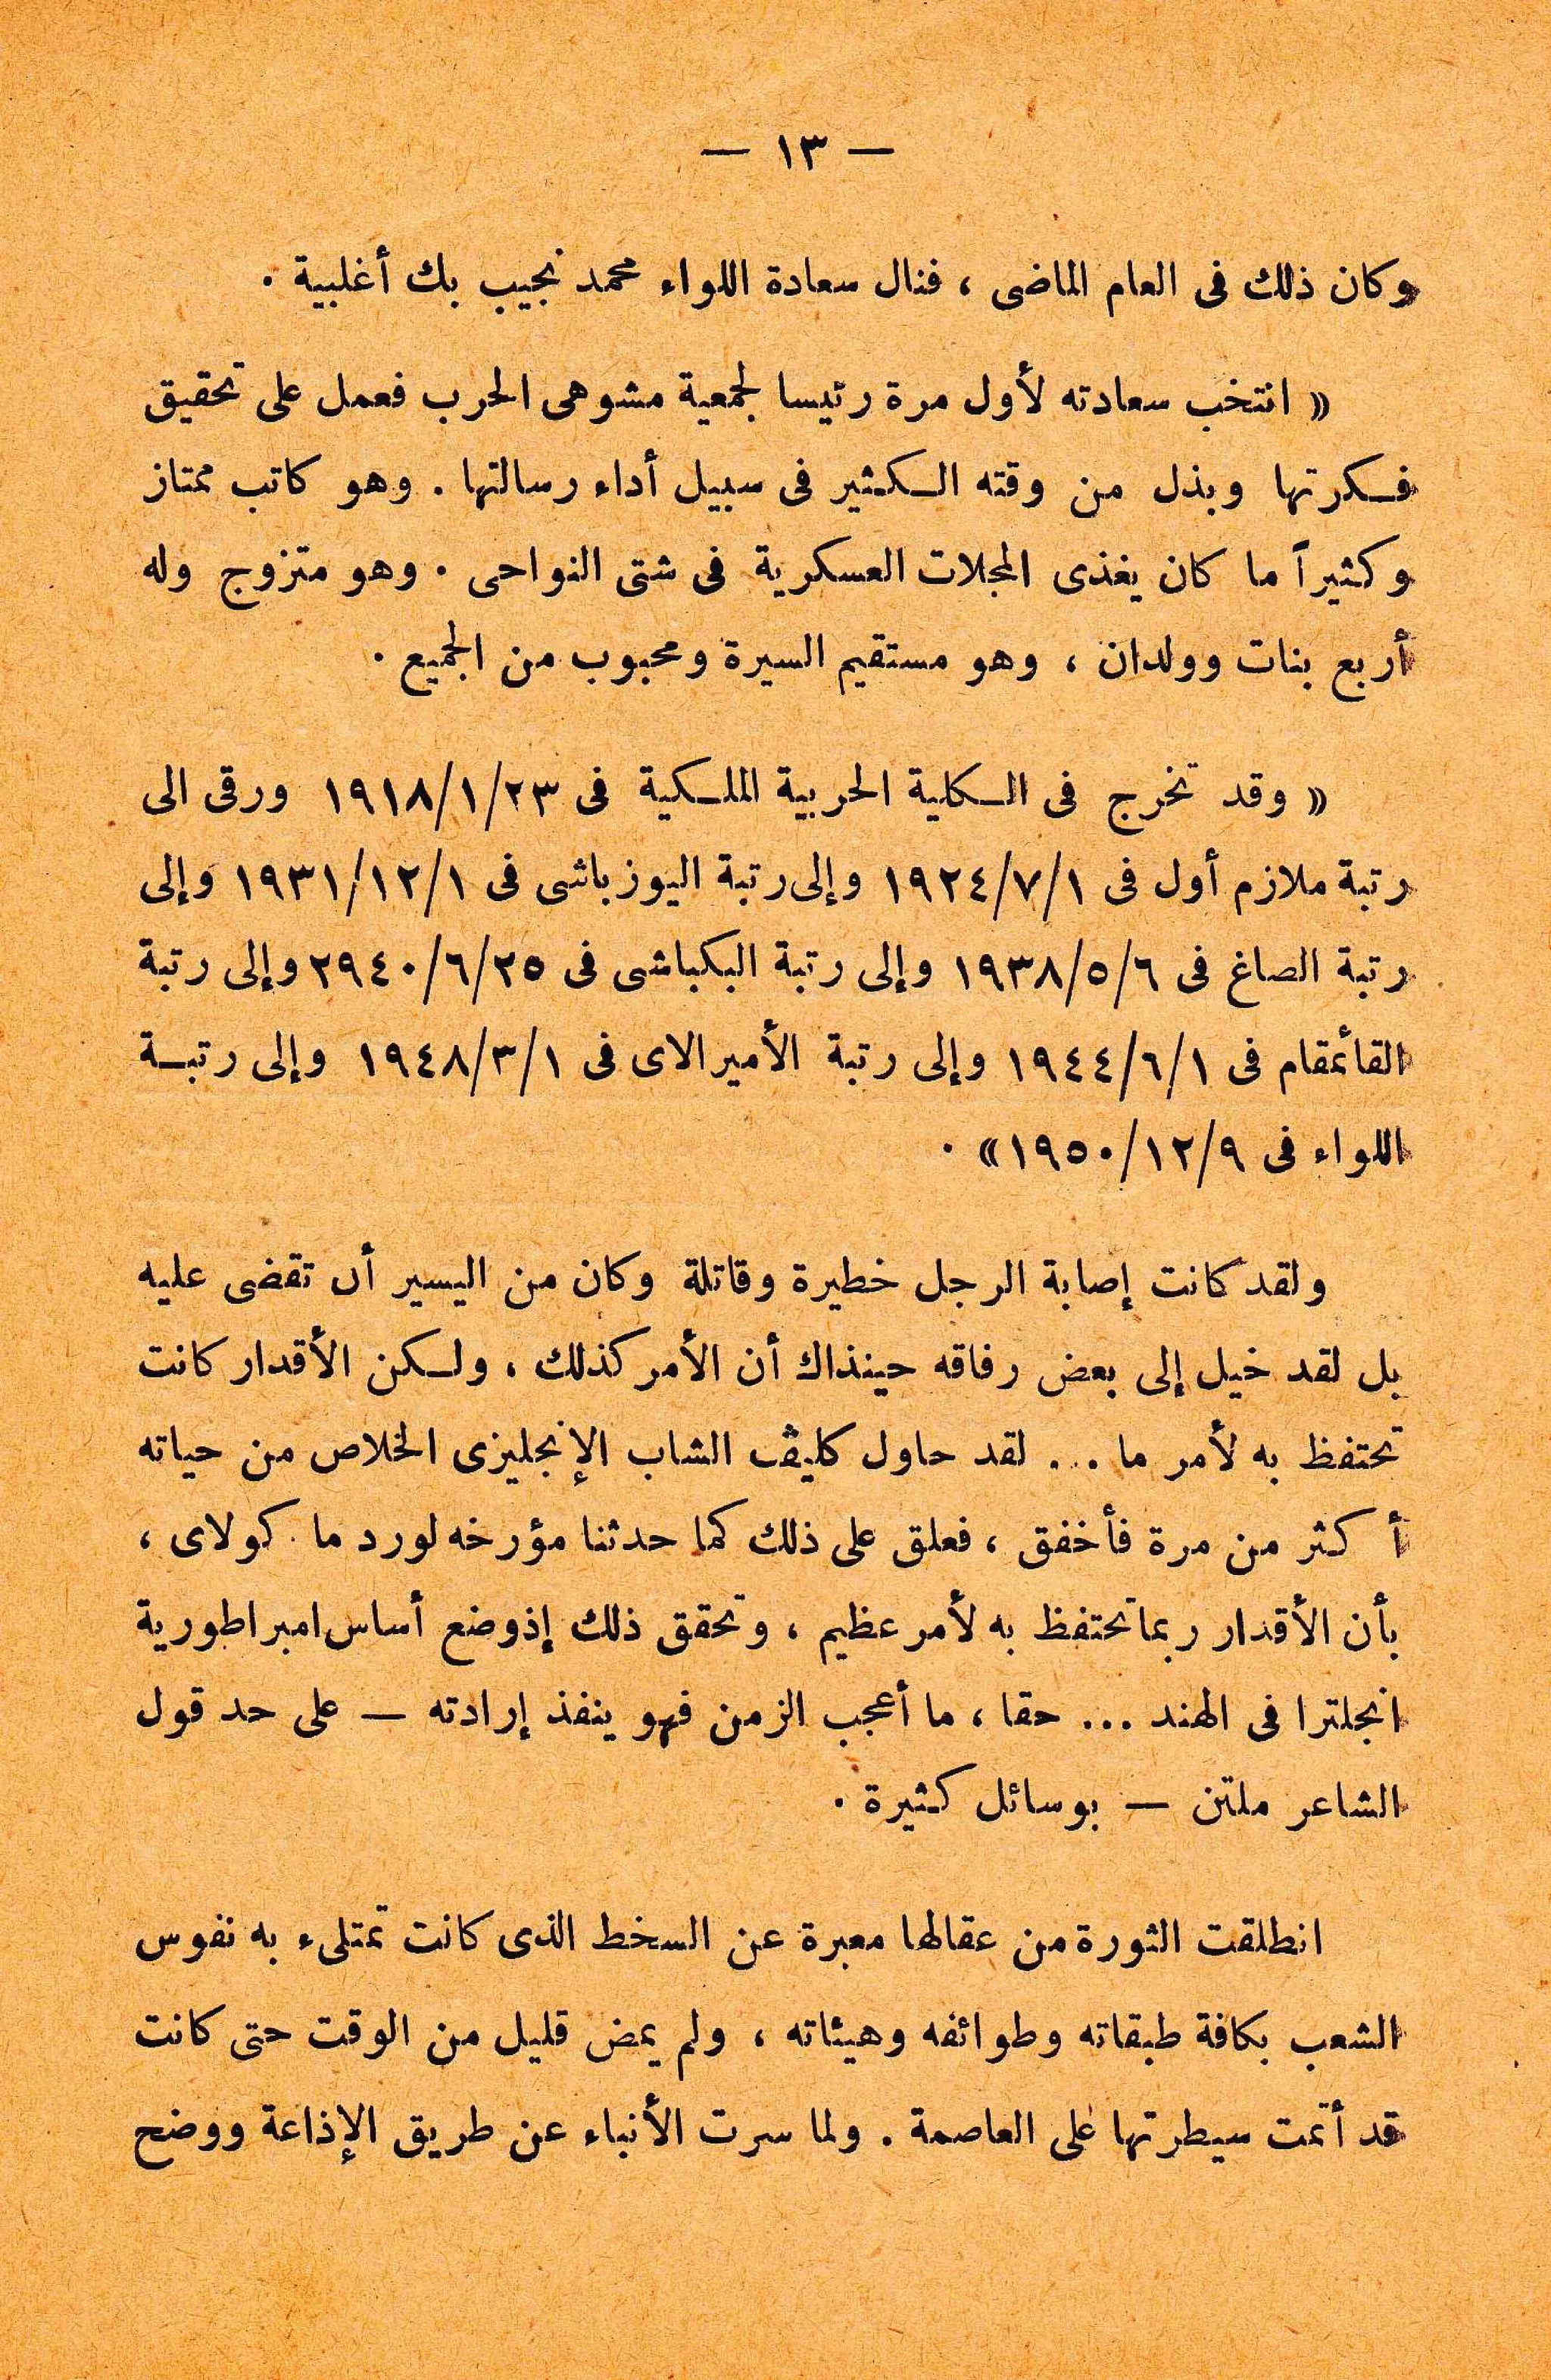 — ١٣ —
وكان ذلك فى العام الماضى ، فنال سعادة اللواء محمد نجيب بك أغلبية .
« انتخب سعادته لأول مرة رئيسا لجمعية مشوهى الحرب فعمل على تحقيق
فكرتها وبذل من وقته الكثير فى سبيل أداء رسالتها . وهو كاتب ممتاز
وكثيراً ما كان يغذى المجلات العسكرية فى شتى النواحى . وهو متزوج وله
أربع بنات وولدان ، وهو مستقيم السيرة ومحبوب من الجميع .
« وقد تخرج فى الكلية الحربية الملكية فى ١٩١٨/١/٢٣ ورقى الى
رتبة ملازم أول فى ١٩٢٤/٧/١ وإلى رتبة اليوزباشى فى ١٩٣١/١٢/١ وإلى
رتبة الصاغ فى ١٩٣٨/٥/٦ وإلى رتبة البكباشى فى ٢٩٤٠/٦/٢٥ وإلى رتبة
القائمقام فى ١٩٤٤/٦/١ وإلى رتبة الأميرالاى فى ١٩٤٨/٣/١ وإلى رتبة
اللواء فى ١٩٥٠/١٢/٩ » .
ولقد كانت إصابة الرجل خطيرة وقاتلة وكان من اليسير أن تقضى عليه
بل لقد خيل إلى بعض رفاقه حينذاك أن الأمر كذلك ، ولكن الأقدار كانت
تحتفظ به لأمر ما ... لقد حاول كليڤ الشاب الإنجليزى الخلاص من حياته
أكثر من مرة فأخفق ، فعلق على ذلك كما حدثنا مؤرخه لورد ما كولاى ،
بأن الأقدار ربما تحتفظ به لأمر عظيم ، وتحقق ذلك إذ وضع أساس امبراطورية
انجلترا فى الهند ... حقا ، ما أعجب الزمن فهو ينفذ إرادته — على حد قول
الشاعر ملتن — بوسائل كثيرة .
انطلقت الثورة من عقالها معبرة عن السخط الذى كانت تمتلىء به نفوس
الشعب بكافة طبقاته وطوائفه وهيئاته ، ولم يمض قليل من الوقت حتى كانت
قد أتمت سيطرتها على العاصمة . ولما سرت الأنباء عن طريق الإذاعة ووضح